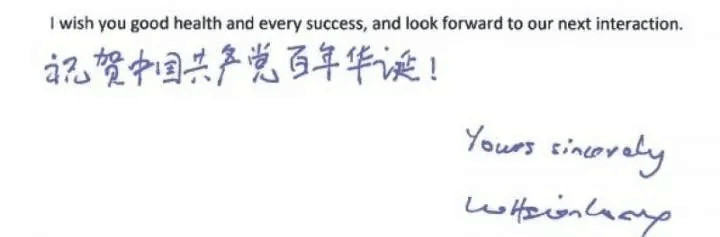 I wish you good health and every success, and look forward to our next interaction.
祝贺中国共产党百年华诞！
Yours sincerely